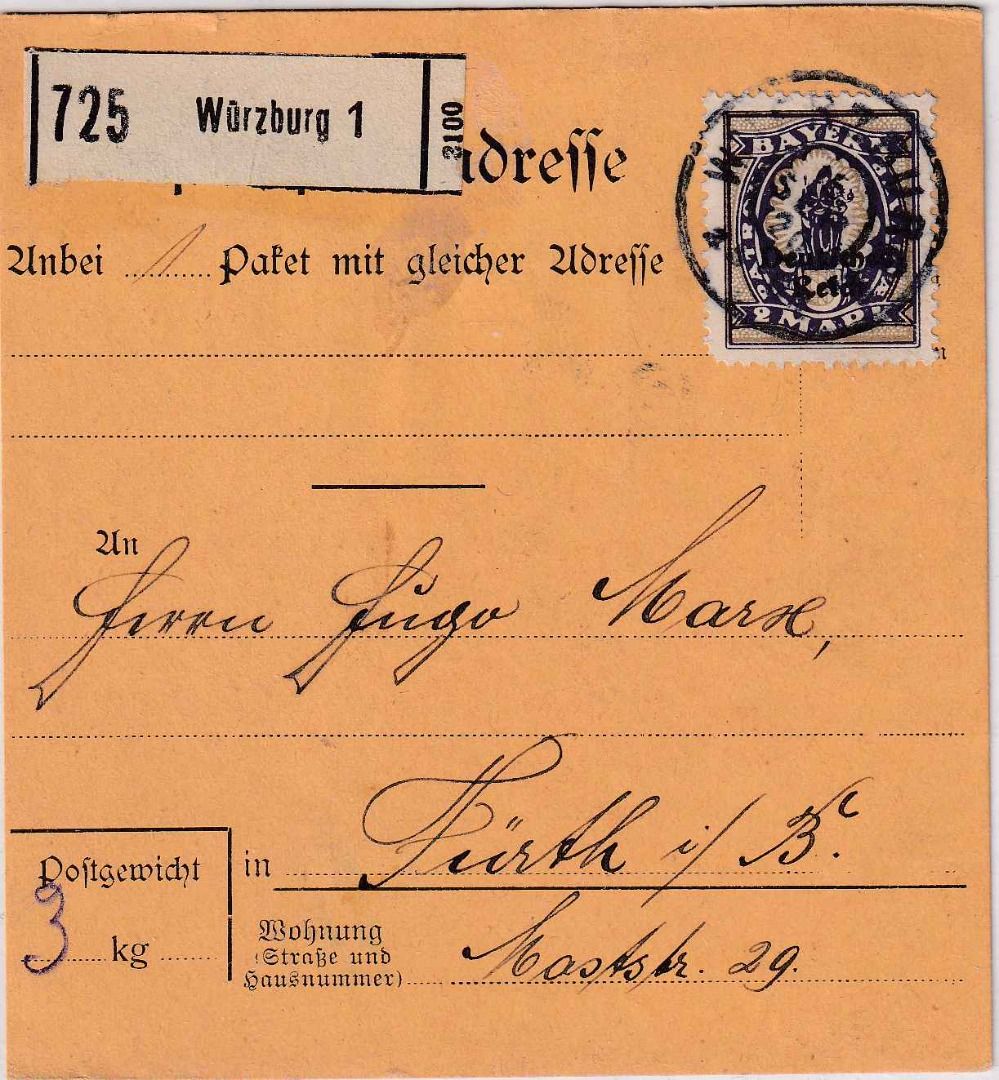 725 Würzburg 1
2100
adresse
BAYERN
2 MARK
Deutsches
Reich
Anbei 1 Paket mit gleicher Adresse
An
Herrn Hugo Marx,
Postgewicht
3 kg
in Fürth i/ B.
Wohnung
(Straße und
Hausnummer)
Maststr. 29.